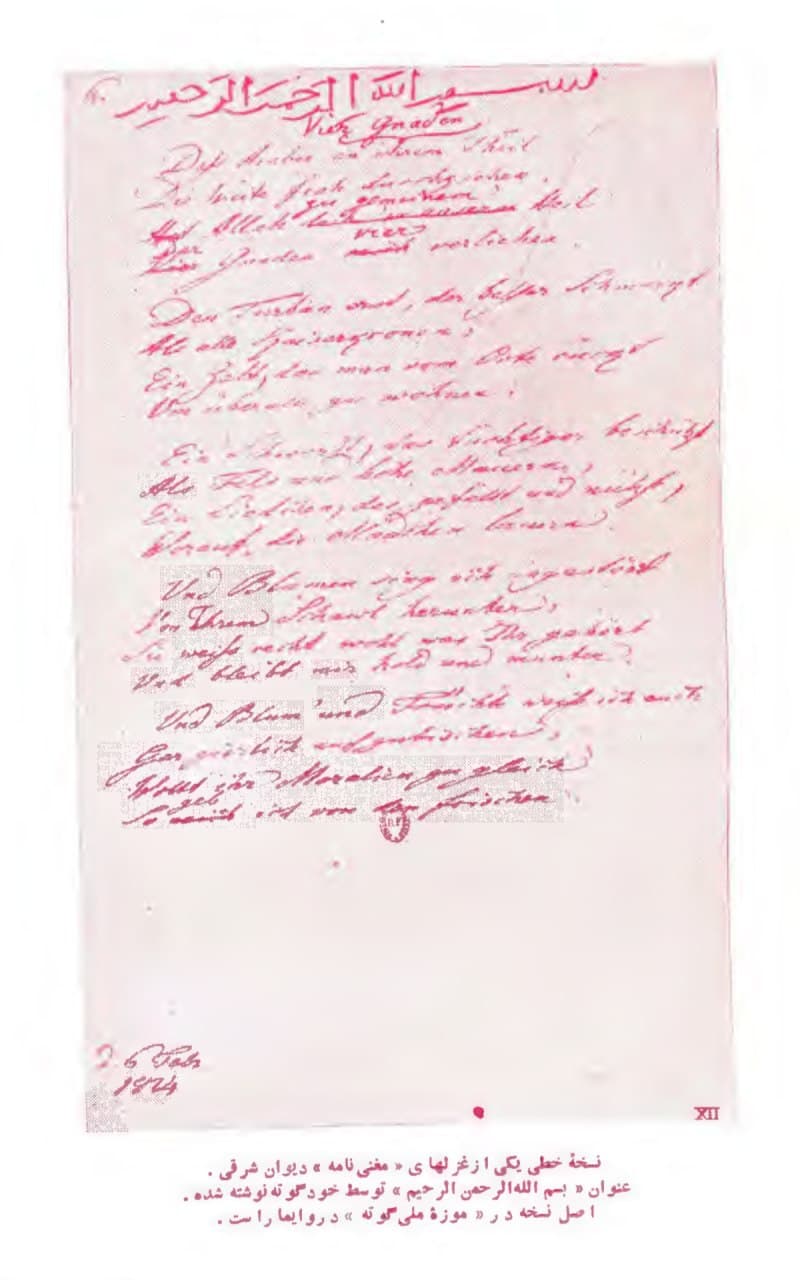 6.
بسم الله الرحمن الرحيم
Vier Gnaden.
Daß Araber an ihrem Theil
Die Weite froh durchziehen,
Hat Allah zu gemeinem Heil
Der Gnaden vier verliehen.
Den Turban erst, der besser schmückt
Als alle Kaiserkronen;
Ein Zelt, das man vom Orte rückt
Um überall zu wohnen;
Ein Schwerdt, das tüchtiger beschützt
Als Fels und hohe Mauern;
Ein Liedchen, das gefällt und nützt,
Worauf die Mädchen lauern.
Und Blumen sing ich ungestört
Von Ihrem Schawl herunter,
Sie weiß recht wohl was Ihr gehört
Und bleibt mir hold und munter.
Und Blum' und Früchte weiß ich euch
Gar zierlich aufzutischen,
Wollt ihr Moralien zugleich
So geb ich von den frischen
d. 6 Febr
XII
نسخهٔ خطی یکی از غزلهای « مغنی نامه » دیوان شرقی .
عنوان « بسم الله الرحمن الرحیم » توسط خود گوته نوشته شده .
اصل نسخه در « موزهٔ ملی گوته » در وایمار است .